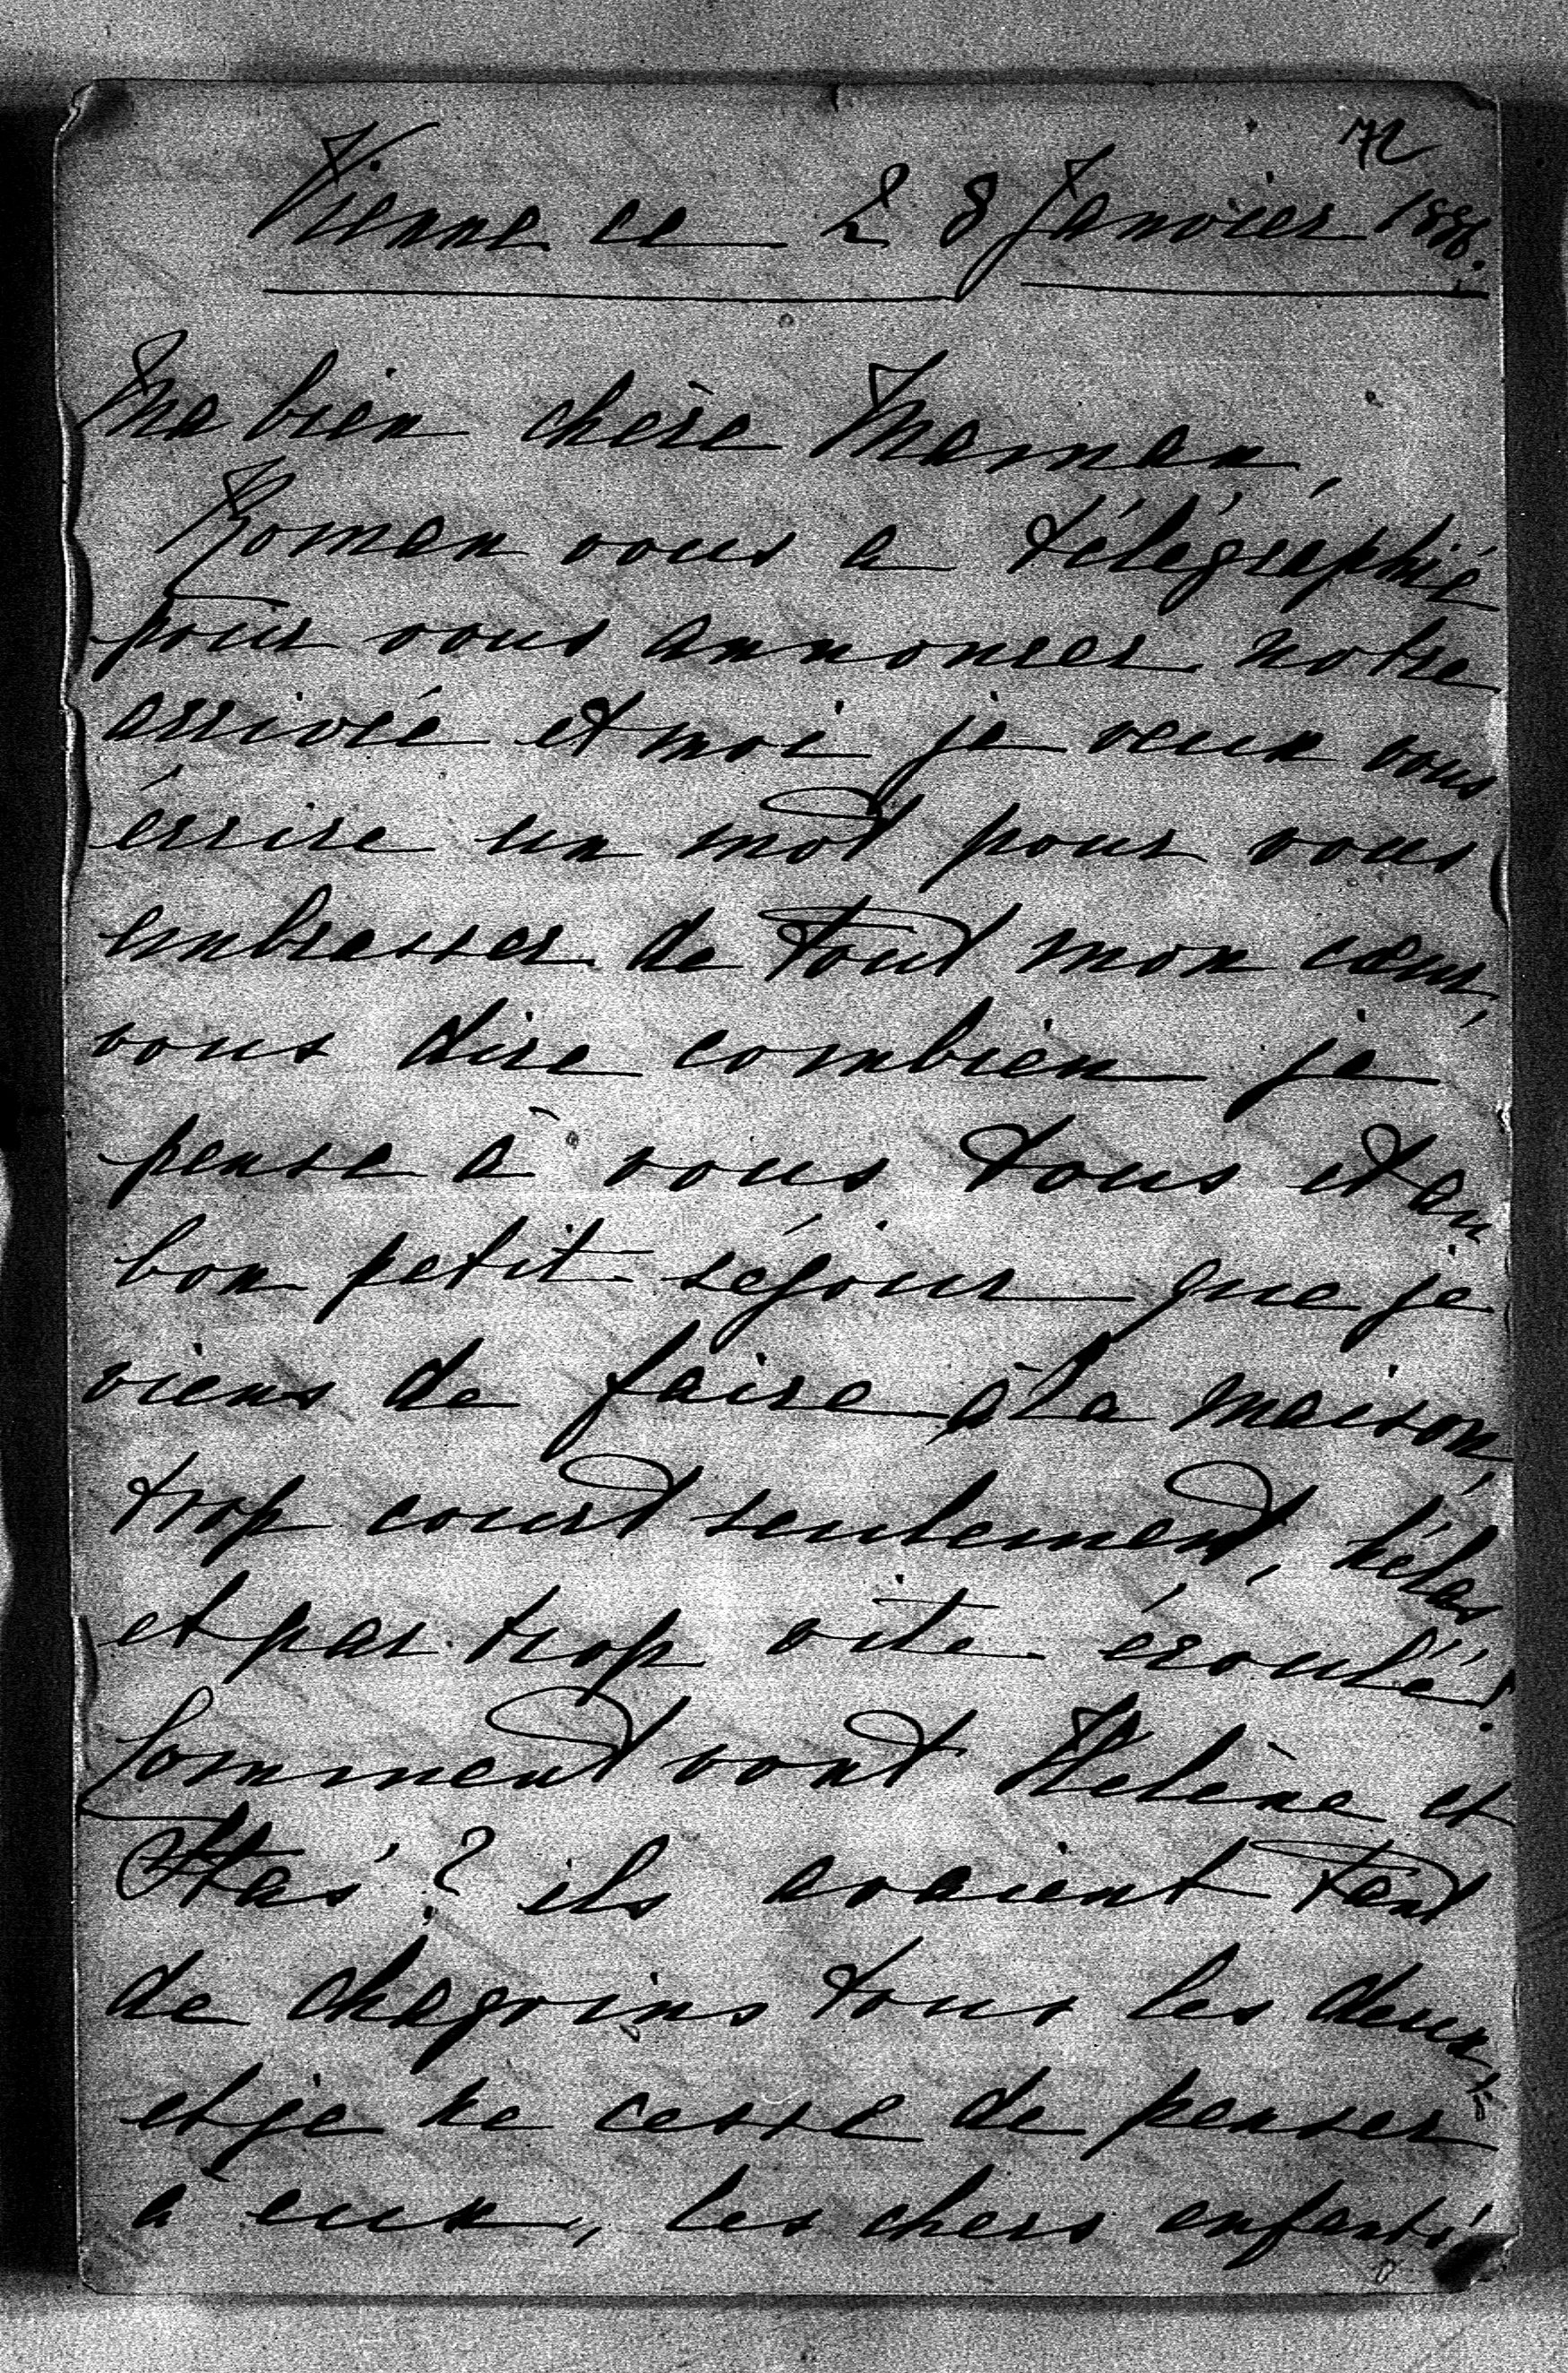 72
Vienne ce 28 Janvier 1886.
Ma bien chère Maman,
Roman vous a télégraphié
pour vous annoncer notre
arrivée et moi je veux vous
écrire un mot pour vous
embrasser de tout mon cœur,
vous dire combien je
pense à vous tous et au
bon petit séjour que je
viens de faire à la maison,
trop court seulement, hélas
et par trop vite écoulé!
Comment vont Hélène et
Staś? ils avaient tant
de chagrins tous les deux
et je ne cesse de penser
à eux, les chers enfants!